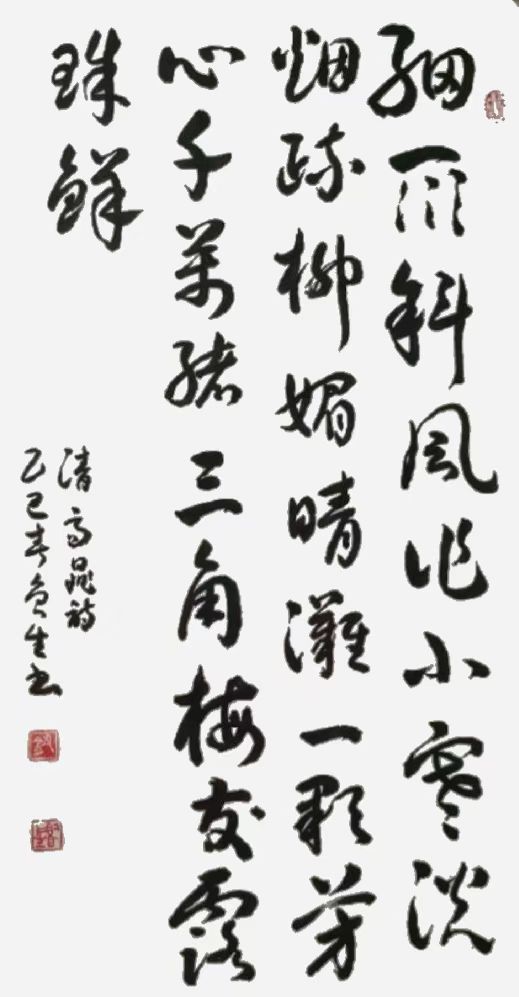 細雨斜風作小寒淡
烟疏柳媚晴灘一顆芳
心千萬緒三角梅友露
珠鮮
清高晁詩
乙巳春生书